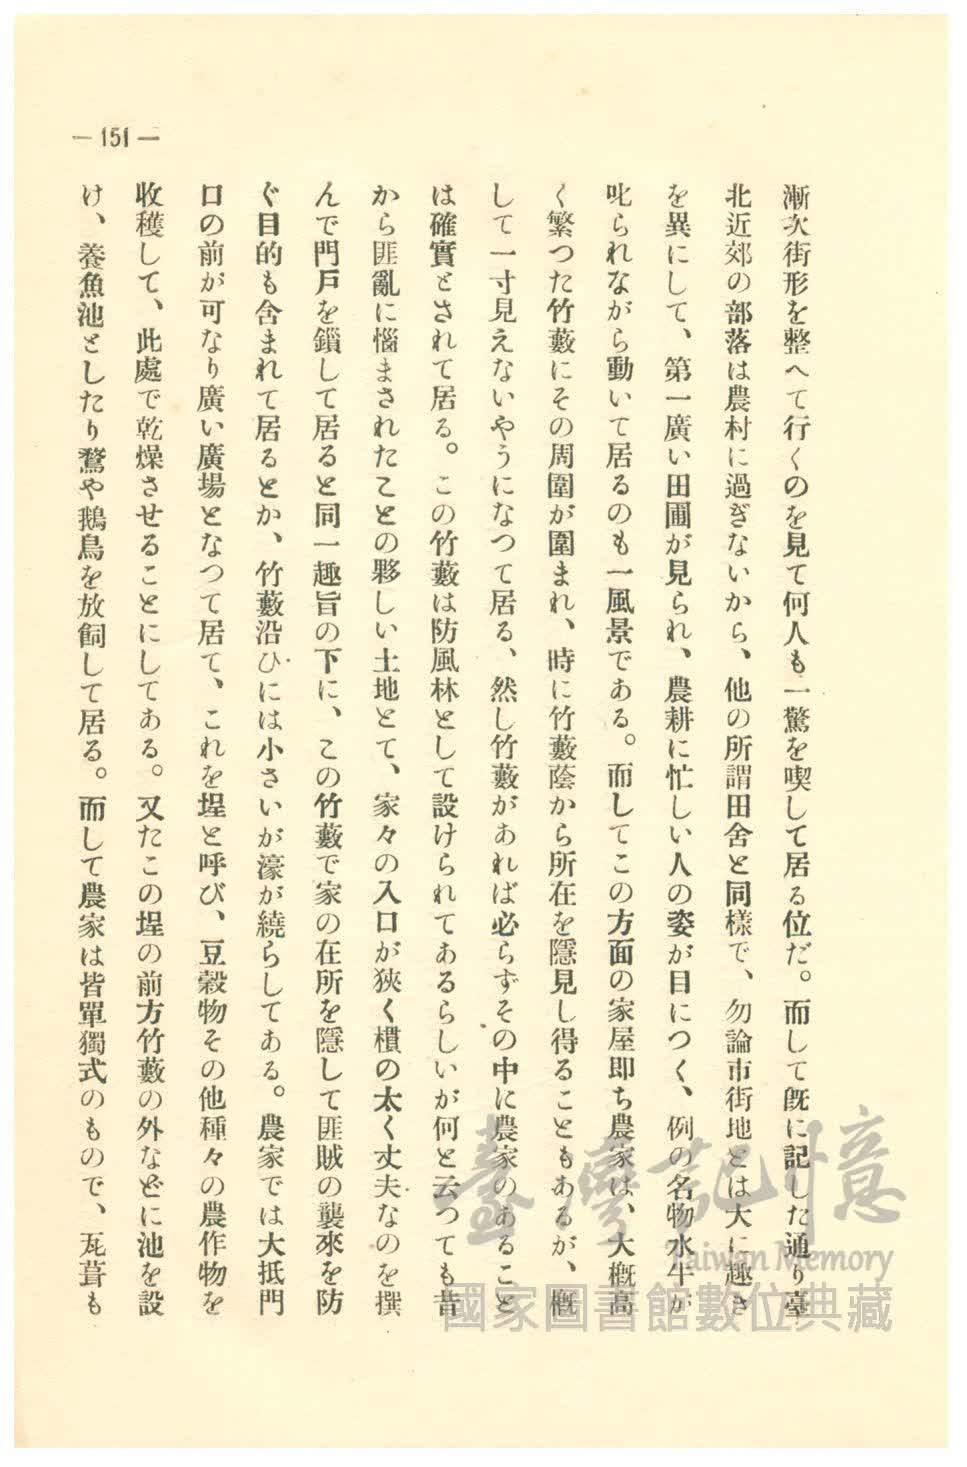 — 151 —
漸次街形を整へて行くのを見て何人も一驚を喫して居る位だ。而して既に記した通り臺
北近郊の部落は農村に過ぎないから、他の所謂田舍と同樣で、勿論市街地とは大に趣き
を異にして、第一廣い田圃が見られ、農耕に忙しい人の姿が目につく、例の名物水牛が
叱られながら動いて居るのも一風景である。而してこの方面の家屋即ち農家は、大概高
く繁つた竹藪にその周圍が圍まれ、時に竹藪蔭から所在を隱見し得ることもあるが、概
して一寸見えないやうになつて居る、然し竹藪があれば必らずその中に農家のあること
は確實とされて居る。この竹藪は防風林として設けられてあるらしいが何と云つても昔
から匪亂に惱まされたことの夥しい土地とて、家々の入口が狹く櫃の太く丈夫なのを撰
んで門戸を鎖して居ると同一趣旨の下に、この竹藪で家の在所を隱して匪賊の襲來を防
ぐ目的も含まれて居るとか、竹藪沿ひには小さいが濠が繞らしてある。農家では大抵門
口の前が可なり廣い廣場となつて居て、これを埕と呼び、豆穀物その他種々の農作物を
收穫して、此處で乾燥させることにしてある。又たこの埕の前方竹藪の外などに池を設
け、養魚池としたり鶩や鵝鳥を放飼して居る。而して農家は皆單獨式のもので、瓦葺も
臺灣記憶
Taiwan Memory
國家圖書館數位典藏